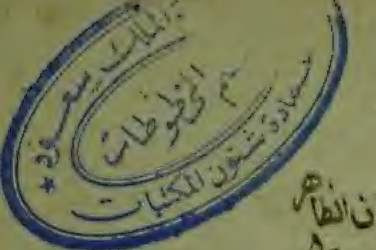 الملك سعود *
قسم المخطوطات
عمادة شئون المكتبات
ن الظاهر